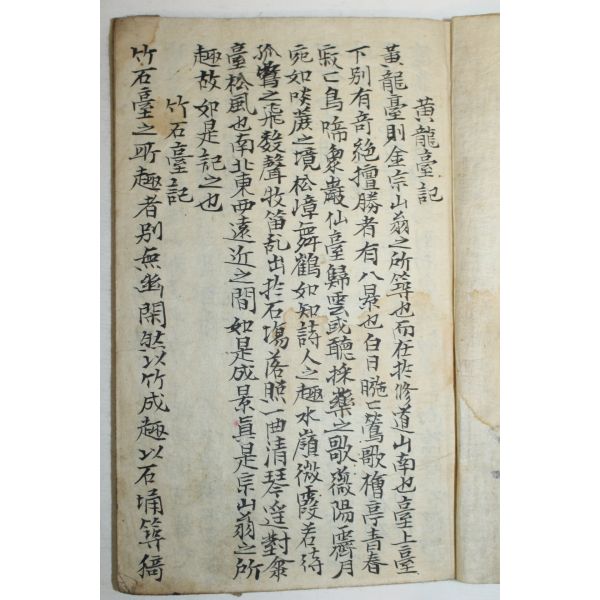 黃龍臺記
黃龍臺則金宗山翁之所築也而在於修道山南也臺上臺
下別有奇絶擅勝者有八景也白日晼〻鶯歌檜亭青春
寂〻鳥啼象巖仙臺歸雲或聽採藥之歌薇陽霽月
宛如啖蔗之境松嶂舞鶴如知詩人之趣水嶺微霞若待
孤鶩之飛數聲牧笛乱出於石塲落照一曲清琴遥對
臺松風也南北東西遠近之間如是成景真是宗山翁之所
趣故如是記之也
竹石臺記
竹石臺之所趣者別無幽閑然以竹成趣以石埇築